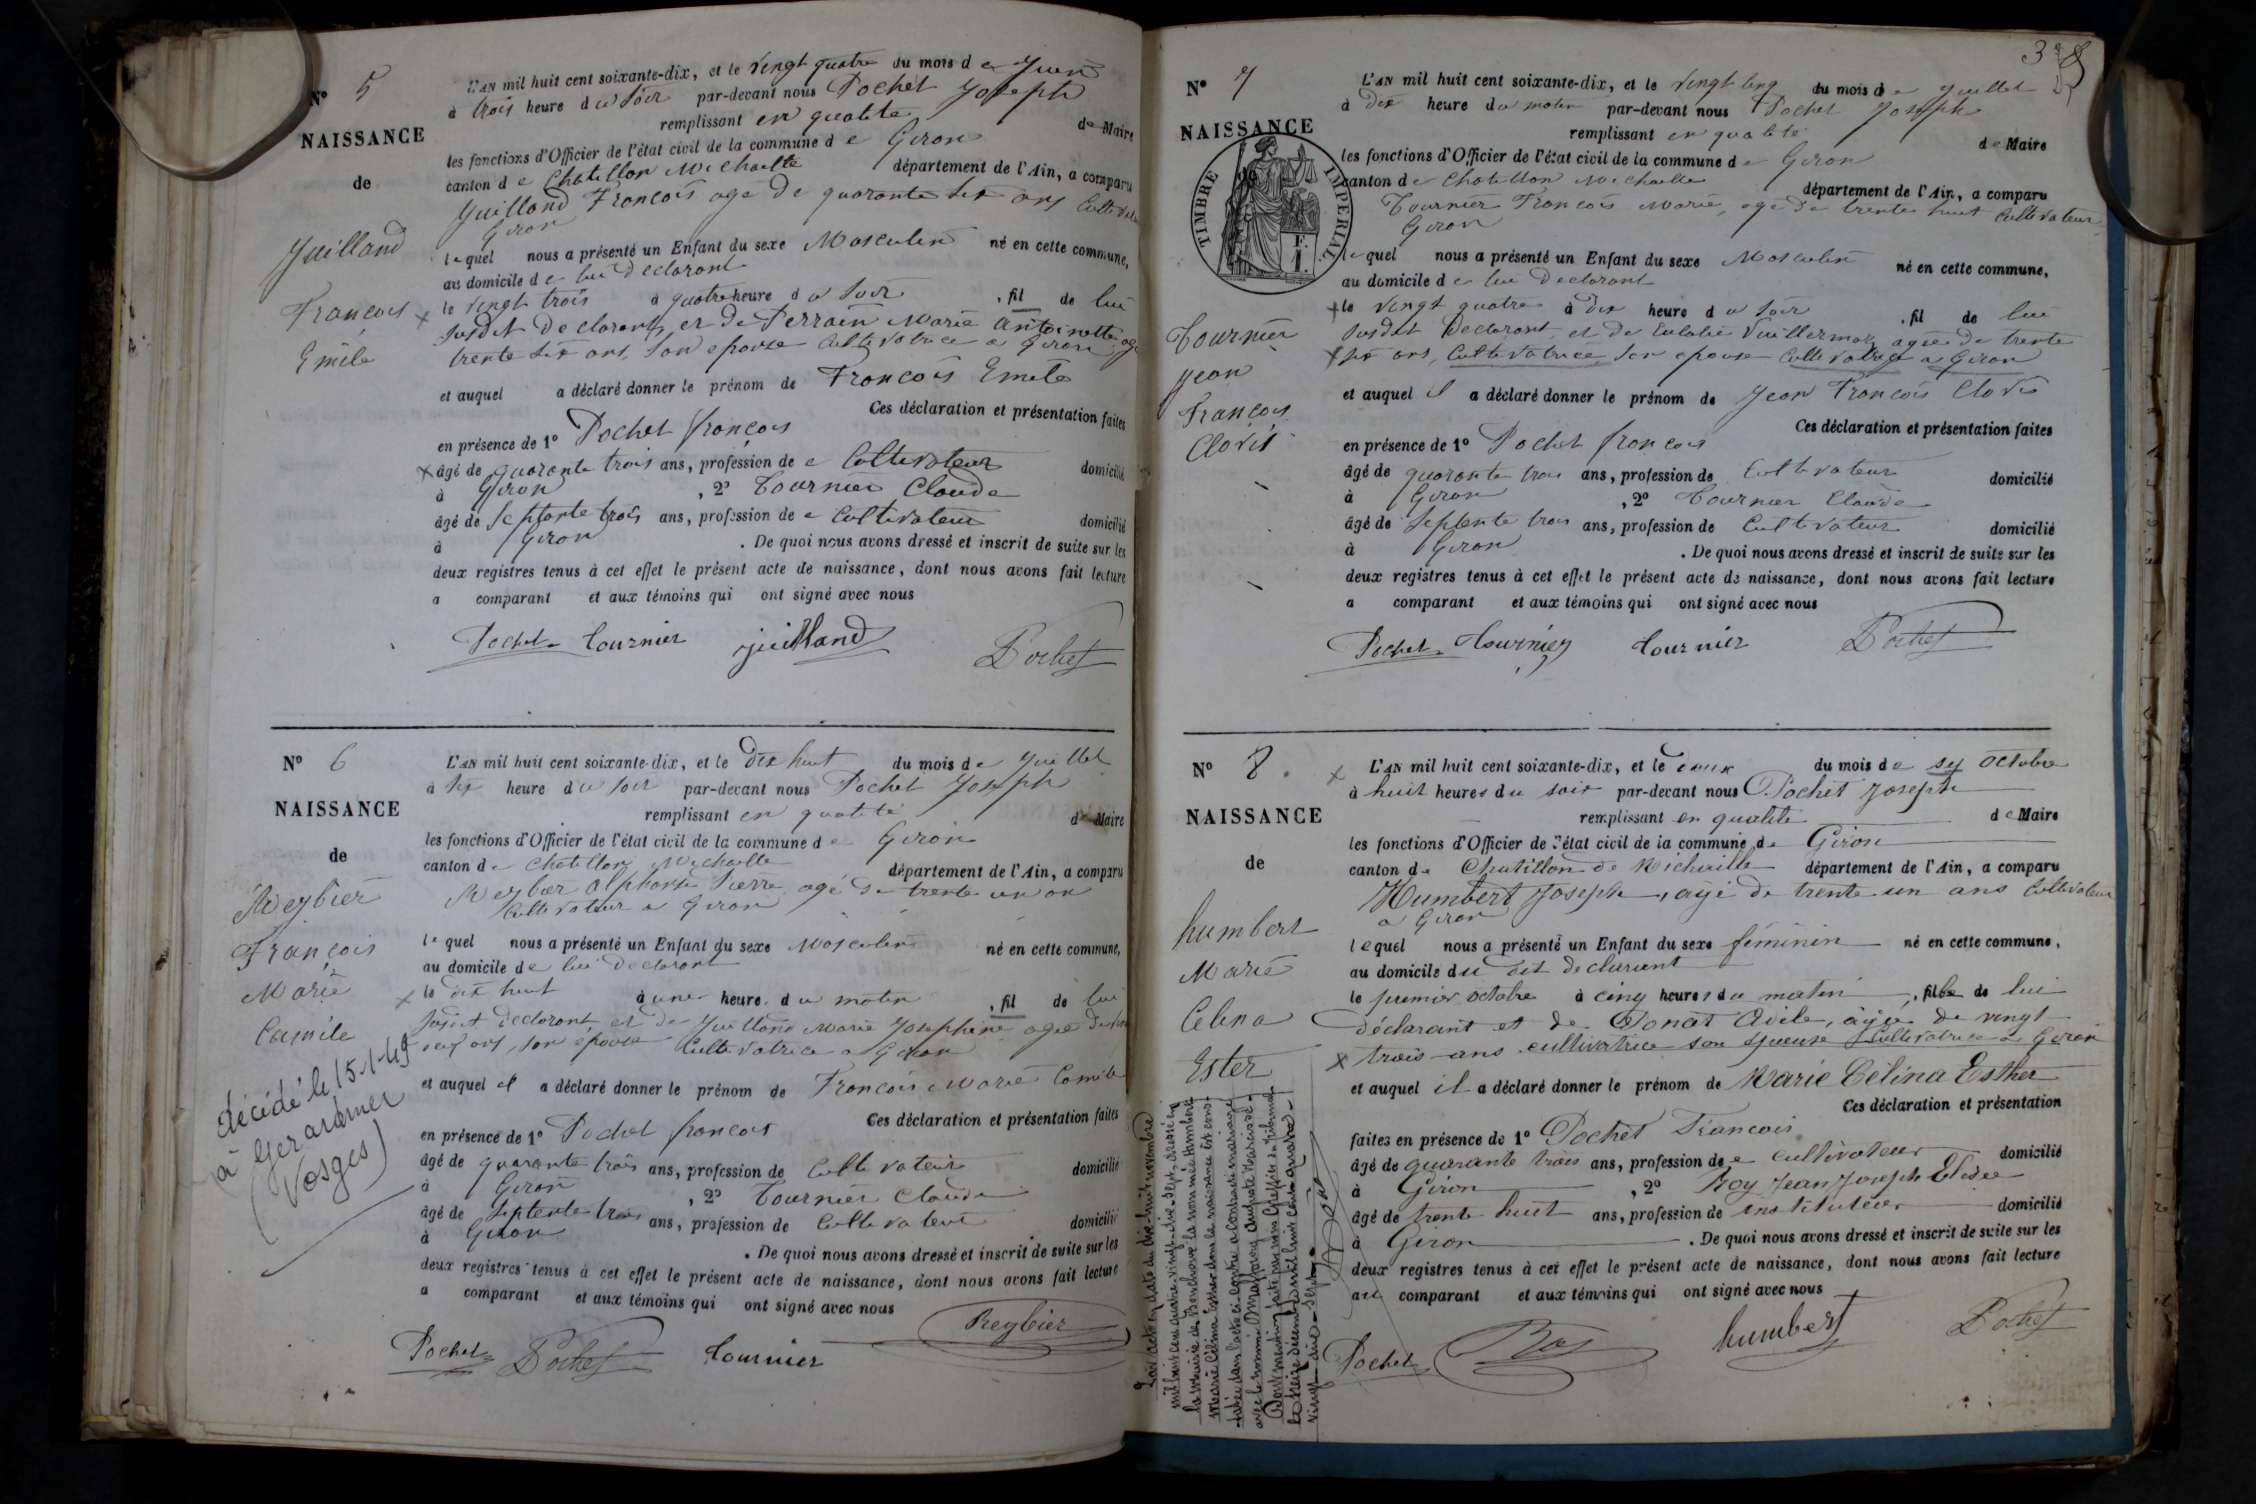 N° 5
NAISSANCE
de
Juilland
François
Emile
L'AN mil huit cent soixante-dix, et le vingt quatre du mois de Juin
à trois heure du soir par-devant nous Pochet Joseph
remplissant en qualité de Maire
les fonctions d'Officier de l'état civil de la commune de Giron
canton de Chatillon Michaille département de l'Ain, a comparu
Juilland François agé de quarante six ans
Giron
lequel nous a présenté un Enfant du sexe Masculin né en cette commune,
au domicile de lui declarant
le vingt trois à quatre heure du soir, fil de lui
susdit declarant, et de Perrain Marie Antoinette
trente six ans, son epouse Cultivatrice a Giron
et auquel a déclaré donner le prénom de François Emile
Ces déclaration et présentation faites
en présence de 1° Pochet françois
âgé de quarante trois ans, profession de Cultivateur domicilié
à Giron, 2° Tournier Claude
âgé de septante trois ans, profession de Cultivateur domicilié
à Giron. De quoi nous avons dressé et inscrit de suite sur les
deux registres tenus à cet effet le présent acte de naissance, dont nous avons fait lecture
a comparant et aux témoins qui ont signé avec nous
Pochet Tournier juilland Pochet
N° 6
NAISSANCE
de
Reybier
François
Marie
Camile
décédé le 15-1-49
à Gerardmer
(Vosges)
L'AN mil huit cent soixante-dix, et le dix huit du mois de Juillet
à six heure du soir par-devant nous Pochet Joseph
remplissant en qualité de Maire
les fonctions d'Officier de l'état civil de la commune de Giron
canton de Chatillon Michaille département de l'Ain, a comparu
Reybier Alphonse Pierre agé de trente un an
Cultivateur a Giron
lequel nous a présenté un Enfant du sexe Masculin né en cette commune,
au domicile de lui declarant
le dix huit à une heure du matin, fil de lui
susdit declarant et de Juilland Marie Josephine agée
neuf ans, son épouse Cultivatrice a Giron
et auquel il a déclaré donner le prénom de François Marie Camile
Ces déclaration et présentation faites
en présence de 1° Pochet françois
âgé de quarante trois ans, profession de Cultivateur domicilié
à Giron, 2° Tournier Claude
âgé de septante trois ans, profession de Cultivateur domicilié
à Giron. De quoi nous avons dressé et inscrit de suite sur les
deux registres tenus à cet effet le présent acte de naissance, dont nous avons fait lecture
a comparant et aux témoins qui ont signé avec nous
Pochet Pochet Tournier Reybier
N° 7
NAISSANCE
TIMBRE IMPERIAL
Tournier
Jean
François
Clovis
L'AN mil huit cent soixante-dix, et le vingt cinq du mois de Juillet
à dix heure du matin par-devant nous Pochet Joseph
remplissant en qualité de Maire
les fonctions d'Officier de l'état civil de la commune de Giron
canton de Chatillon Michaille département de l'Ain, a comparu
Tournier François Marie, agé de trente huit Cultivateur
Giron
lequel nous a présenté un Enfant du sexe Masculin né en cette commune,
au domicile de lui declarant
le vingt quatre à dix heure du soir, fil de lui
susdit Declarant et de Eulalie Vuillermoz agée de trente
six ans, Cultivatrice son epouse Cultivatrice a Giron
et auquel il a déclaré donner le prénom de Jean François Clovis
Ces déclaration et présentation faites
en présence de 1° Pochet françois
âgé de quarante trois ans, profession de Cultivateur domicilié
à Giron, 2° Tournier Claude
âgé de septante trois ans, profession de Cultivateur domicilié
à Giron. De quoi nous avons dressé et inscrit de suite sur les
deux registres tenus à cet effet le présent acte de naissance, dont nous avons fait lecture
a comparant et aux témoins qui ont signé avec nous
Pochet Tournier Tournier Pochet
N° 8.
NAISSANCE
de
humbert
Marie
Celina
Ester
L'AN mil huit cent soixante-dix, et le deux du mois de octobre
à huit heures du soir par-devant nous Pochet Joseph
remplissant en qualité de Maire
les fonctions d'Officier de l'état civil de la commune de Giron
canton de Chatillon de Michaille département de l'Ain, a comparu
Humbert Joseph, agé de trente un ans Cultivateur
a Giron
lequel nous a présenté un Enfant du sexe féminin né en cette commune,
au domicile du dit declarant
le premier octobre à cinq heures du matin, fille de lui
déclarant et de Donat Adile, agée de vingt
trois ans cultivatrice son épouse Cultivatrice a Giron
et auquel il a déclaré donner le prénom de Marie Célina Esther
Ces déclaration et présentation
faites en présence de 1° Pochet François
âgé de quarante trois ans, profession de cultivateur domicilié
à Giron, 2° Roy Jean Joseph Elisée
âgé de trente huit ans, profession de instituteur domicilié
à Giron. De quoi nous avons dressé et inscrit de suite sur les
deux registres tenus à cet effet le présent acte de naissance, dont nous avons fait lecture
au comparant et aux témoins qui ont signé avec nous
Pochet Roy humbert Pochet
Par acte en date du dix-huit novembre
mil huit cent quatre vingt-dix-sept, dressé
la mairie de la nommée Humbert
Marie Célina Esther dont la naissance est
dans l'acte ci-contre a contracté mariage
avec le nommé Auguste